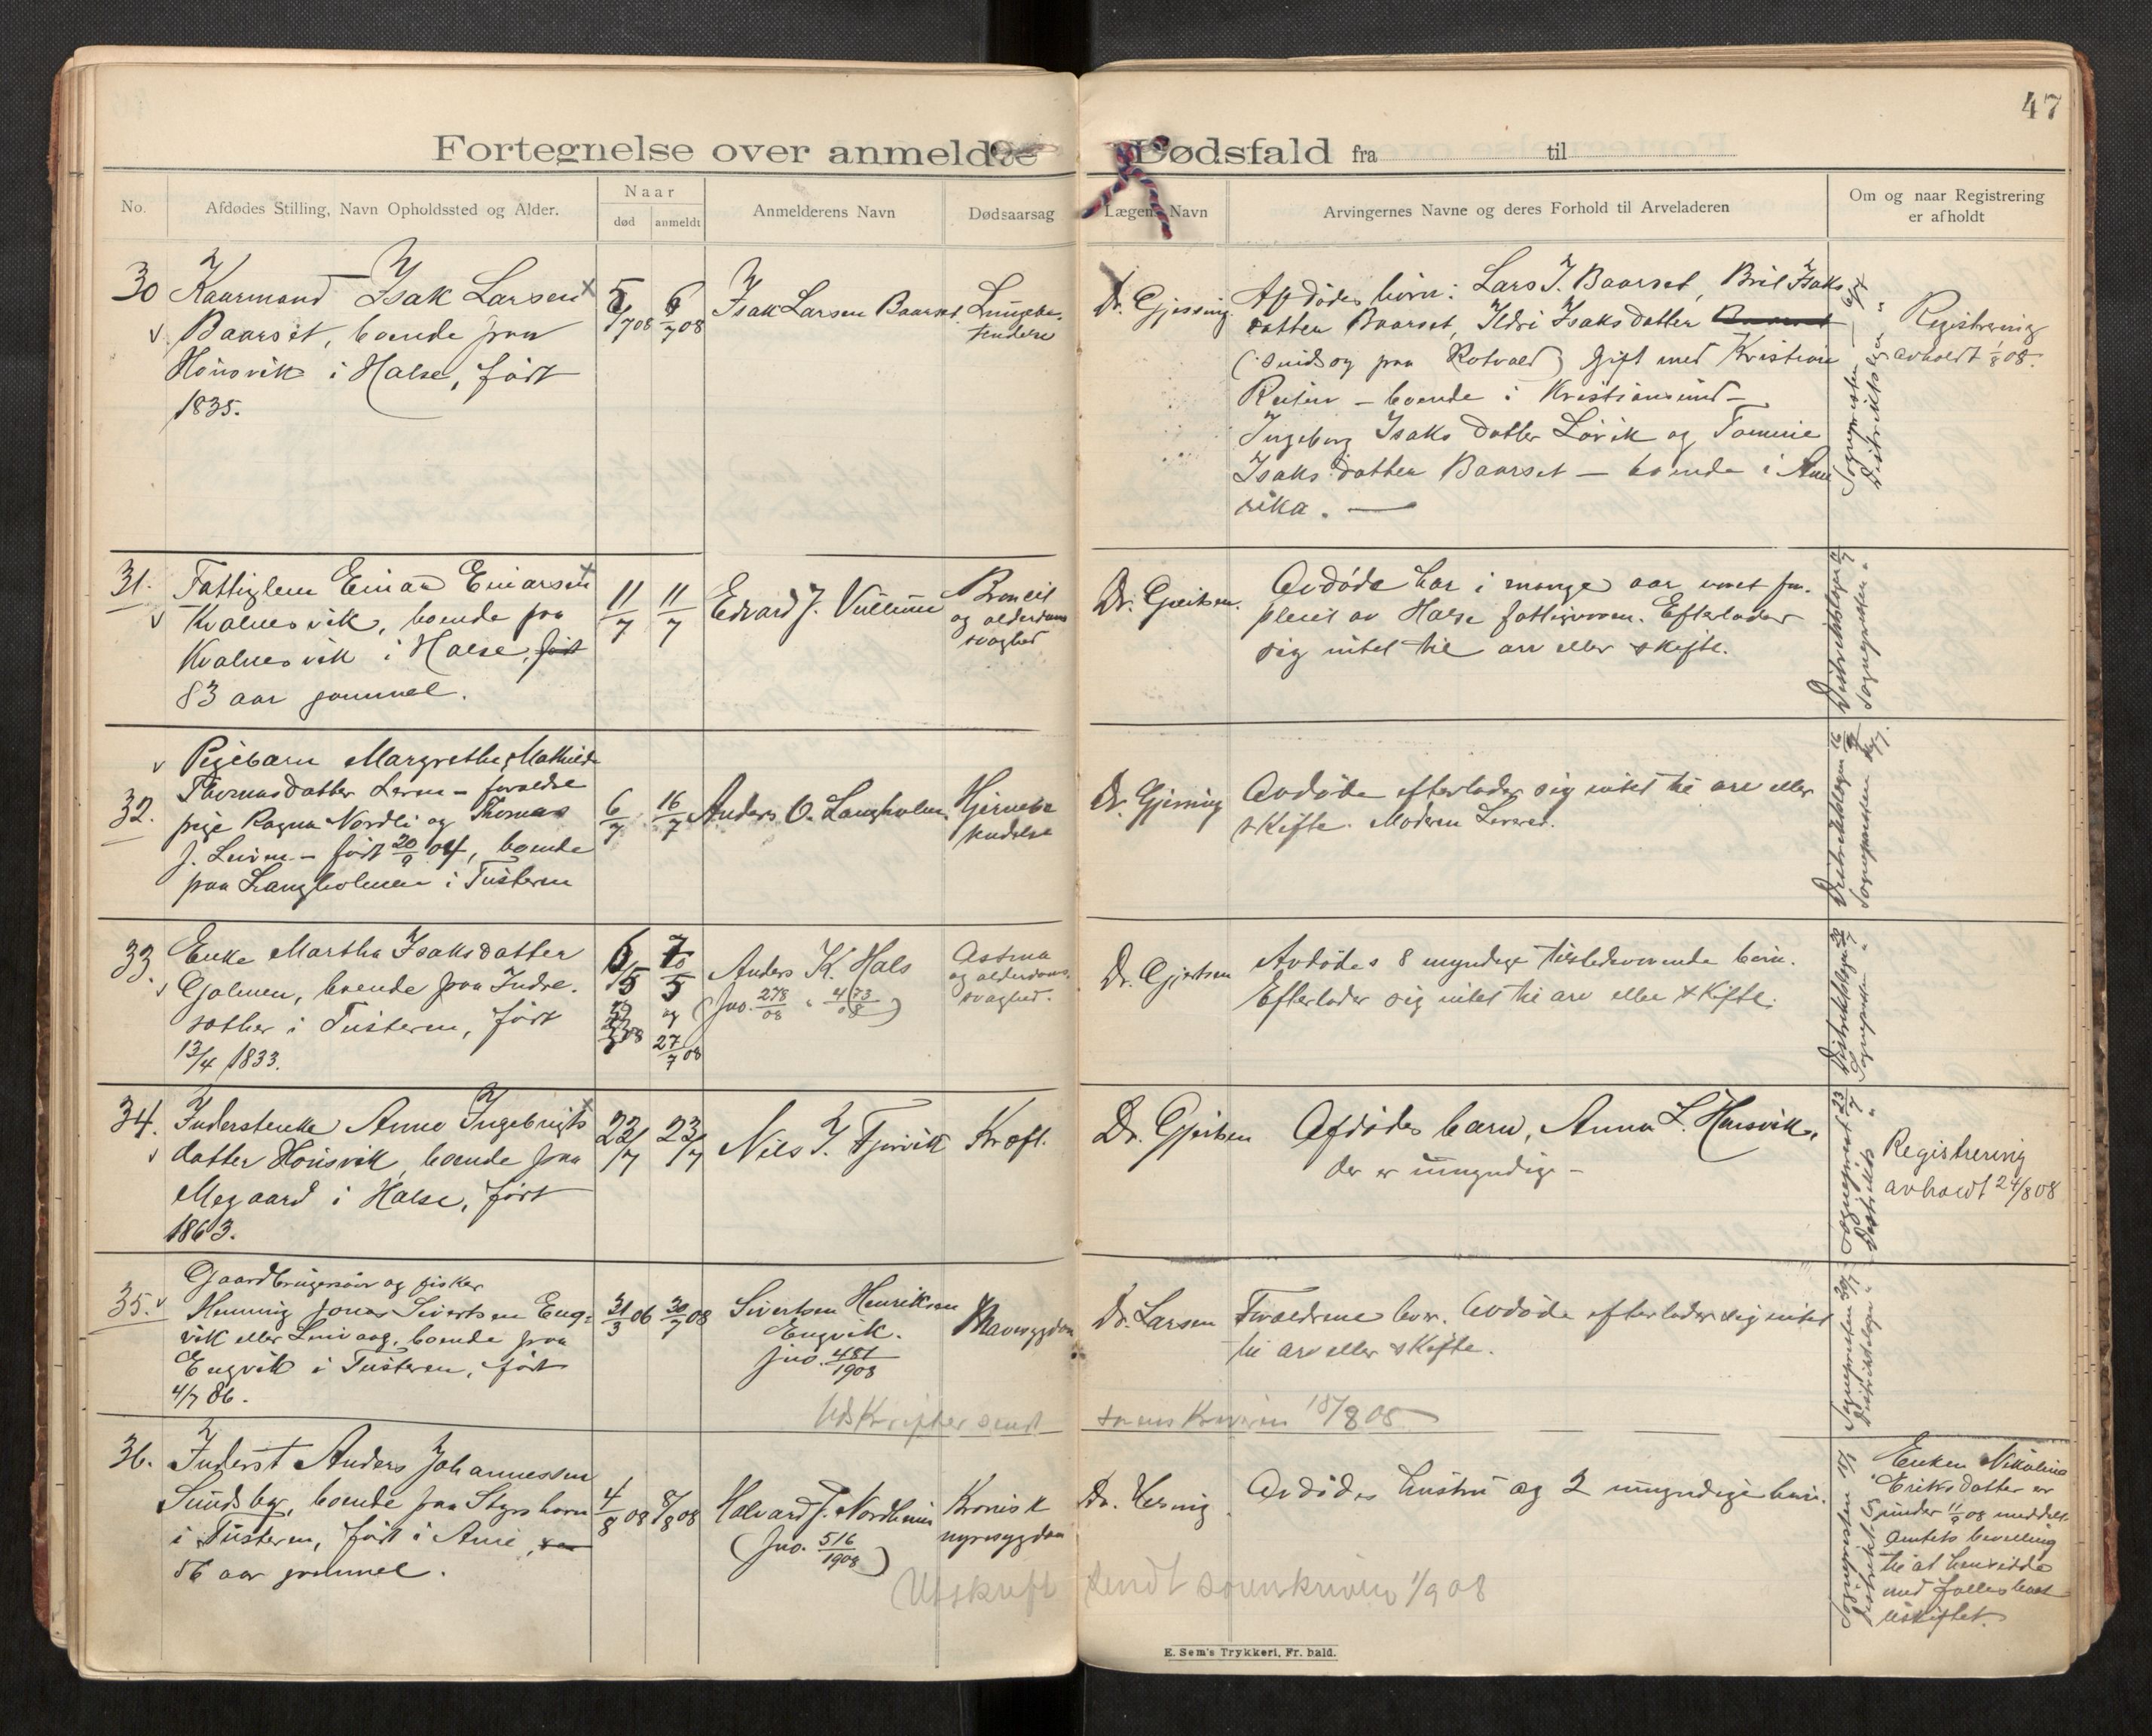 47
Fortegnelse over anmeldte Dødsfald fra til
No.
Afdødes Stilling, Navn Opholdssted og Alder.
Naar
død
anmeldt
Anmelderens Navn
Dødsaarsag
Lægens Navn
Arvingernes Navne og deres Forhold til Arveladeren
Om og naar Registrering
er afholdt
30
Kaarmand Isak Larsen
Baarset, boende paa
Hønsvik i Halse, født
1835.
5/7 08
6/7 08
Isak Larsen Baarset
Lungebe-
tendelse
Dr. Gjessing
Afdødes børn: Lars I. Baarset, Brit Isaks
datter Baarset, Ildri Isaksdatter Baarset
gift med Kristian
boende i Kristiansund
Ingeborg Isaksdatter Løvik og
Isaksdatter Baarset – boende i Ame
rika. —
Sognepresten
Distriktslægen "
Registrering
avholdt 1/8 08.
31.
Fattiglem Einar Einarsen
Kvalnesvik, boende paa
Kvalnesvik i Halse, født
83 aar gammel.
11/7
11/7
Edvard J.
og alderdoms
svaghed
Dr. Gjertsen.
Avdøde har i mange aar været for-
pleiet av Halse fattigvæsen. Efterlader
sig intet til arv eller skifte.
Distriktslægen
Sognepresten "
Pigebarn Margrethe Mathilde
Thomasdatter Leren – forældre
32.
pige Ragna Nordli og Thomas
J. – født 20/9 04, boende
paa Langholmen i Tusteren
6/7
16/7
Anders O. Langholm.
Hjernebe
tendelse
Dr. Gjessing
Avdøde efterlader sig intet til arv eller
skifte. Moderen
Distriktslægen 16/7
Sognepresten
33.
Enke Martha Isaksdatter
Gjølmen, boende paa Indre-
sæther i Tusteren, født
13/4 1833.
og
27/7 08
Anders K. Hals
(Jno. 278/08 " 473/08)
Astma
og alderdoms-
svaghed.
Dr. Gjertsen
Avdødes 8 myndige tilstedeværende børn.
Efterlader sig intet til arv eller skifte.
Distriktslægen
Sognepresten "
34.
Inderstenke Anne Ingebrigts
datter Hønsvik, boende paa
Megaard i Halse, født
1863.
22/7
23/7
Nils I. Fjørvik
Kræft.
Dr. Gjertsen
Afdødes barn, Anna L. Hønsvik,
der er umyndige –
Sogneprest 23/7
Distrikts "
Registrering
avholdt 24/8 08
35.
Gaardbrugersøn og fisker
Henning Jonas Sivertsen Eng-
vik eller boende paa
Engvik i Tusteren, født
4/7 86.
31/3 06
30/7 08
Sivertsen Henriksen
Engvik.
Jno. 481/1908
Mavesygdom
Dr. Larsen
Forældrene lever. Avdøde efterlader sig intet
til arv eller skifte.
Sognepresten 30/7
Distriktslægen "
Udskrifter sendt sorenskriveren 18/8 08
36.
Inderst Anders Johannessen
Sundsby, boende paa
i Tusteren, født i Aure,
56 aar gammel.
4/8 08
8/8 08
Halvard J. Nordheim
(Jno. 516/1908)
Kronisk
nyresygdom
Avdødes hustru og 2 umyndige børn.
Sognepresten
Enken Nikoline
Eriksdatter er
under 11/9 08 meddelt
Amtets bevilling
til at hensidde
med fælles boet
uskiftet.
Utskrift sendt sorenskriveren 1/9 08
E. Sem's Trykkeri, Fr. hald.